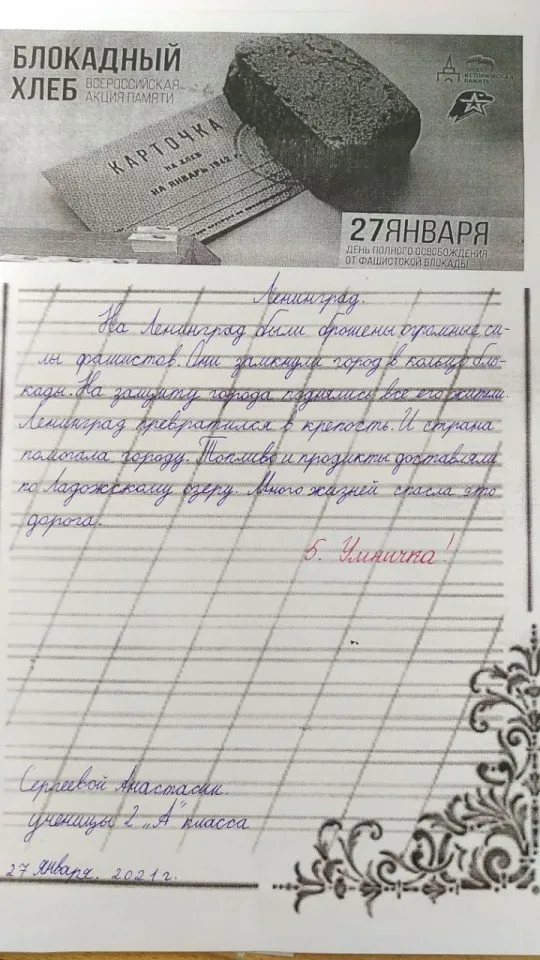 БЛОКАДНЫЙ
ХЛЕБ
ВСЕРОССИЙСКАЯ
АКЦИЯ ПАМЯТИ
ИСТОРИЧЕСКАЯ
ПАМЯТЬ
КАРТОЧКА
НА ХЛЕБ
НА ЯНВАРЬ 1942 г.
27 ЯНВАРЯ
ДЕНЬ ПОЛНОГО ОСВОБОЖДЕНИЯ
ОТ ФАШИСТСКОЙ БЛОКАДЫ
Ленинград.
На Ленинград были брошены огромные си-
лы фашистов. Они замкнули город в кольцо бло-
кады. На защиту города поднялись все его жители.
Ленинград превратился в крепость. И страна
помогала городу. Топливо и продукты доставляли
по Ладожскому озеру. Много жизней спасла это
дорога.
5. Умничка!
Сергеевой Анастасии
ученицы 2 „А" класса
27 января. 2021 г.